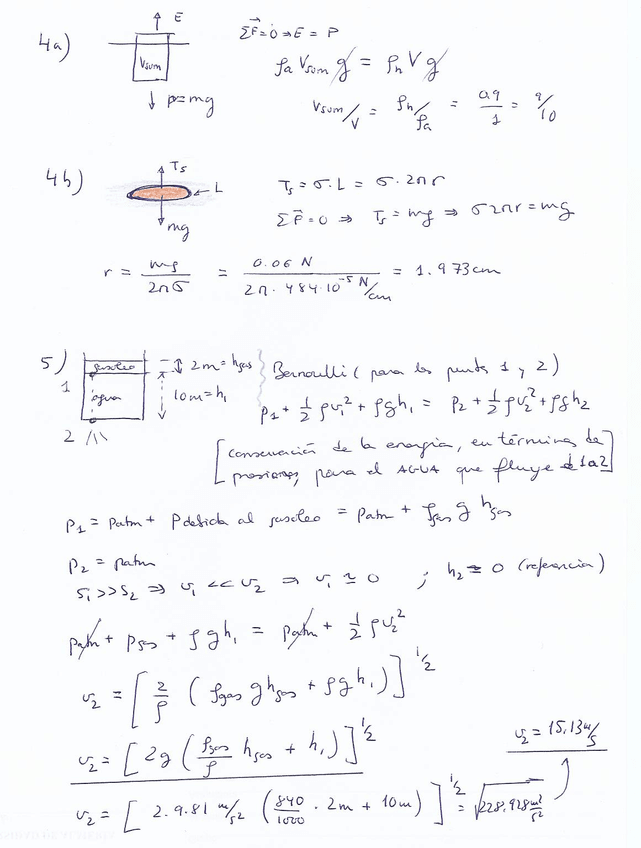 4a) E ΣF⃗=0 ⇒ E = P
Vsum
ρa Vsum g = ρh V g
↓ p=mg
Vsum/V = ρh/ρa = 0.9/1 = 9/10
4b) Ts
L
mg
Ts = σ·L = σ·2πr
ΣF⃗=0 ⇒ Ts = mg ⇒ σ2πr = mg
r = mg/2πσ = 0.06 N / 2π·484·10⁻⁵ N/cm = 1.973cm
5) gasoleo
2m = hgas
1 agua
10m = h₁
2
Bernoulli (para los punts 1 y 2)
p₁ + 1/2 ρv₁² + ρgh₁ = p₂ + 1/2 ρv₂² + ρgh₂
[conservación de la energía, en términos de
presiones, para el AGUA que fluye d 1a2]
p₁ = patm + Pdebida al gasoleo = patm + ρgas g hgas
p₂ = patm
S₁>>S₂ ⇒ v₁ << v₂ ⇒ v₁ ≃ 0 ; h₂ = 0 (referencia)
patm + pgas + ρgh₁ = patm + 1/2 ρv₂²
v₂ = [2/ρ (ρgas g hgas + ρgh₁)]^1/2
v₂ = [2g (ρgas/ρ hgas + h₁)]^1/2
v₂ = 15,13m/s
v₂ = [2·9.81 m/s² (840/1000 · 2m + 10m)]^1/2 = √228.928m²/s²